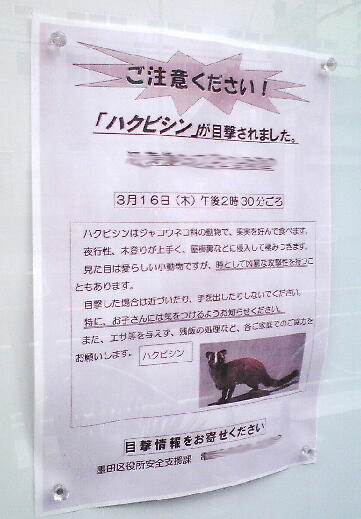 ご注意ください!
「ハクビシン」が目撃されました。
3月16日(木)午後2時30分ごろ
ハクビシンはジャコウネコ科の動物で、果実を好んで食べます。
夜行性、木登りが上手く、屋根裏などに侵入して棲みつきます。
見た目は愛らしい小動物ですが、時として凶暴な攻撃性を持つこ
ともあります。
目撃した場合は近づいたり、手を出したりしないでください。
特に、お子さんには気をつけるようお知らせください。
また、エサ等を与えず、残飯の処理など、各ご家庭でのご協力を
お願いします。
ハクビシン
目撃情報をお寄せください
墨田区役所安全支援課